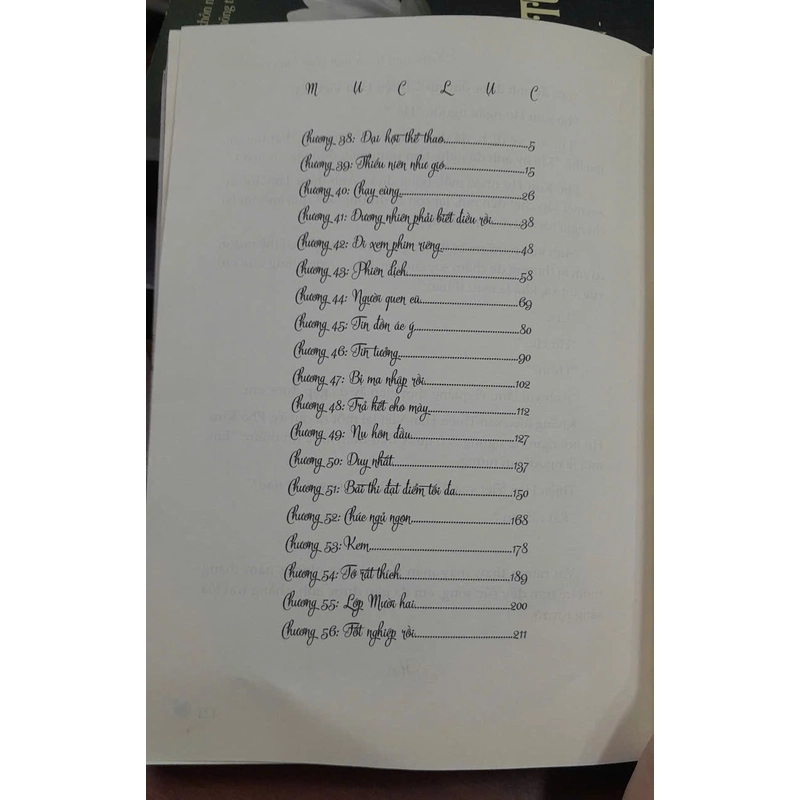 M U C L U C
Chương 38: Đại hội thể thao 5
Chương 39: Thiếu niên như gió 15
Chương 40: Chạy cùng 26
Chương 41: Đương nhiên phải biết điều rồi 38
Chương 42: Đi xem phim riêng 48
Chương 43: Phiên dịch 58
Chương 44: Người quen cũ 69
Chương 45: Tin đồn ác ý 80
Chương 46: Tin tưởng 90
Chương 47: Bị ma nhập rồi 102
Chương 48: Trả hết cho mày 112
Chương 49: Nụ hôn đầu 127
Chương 50: Duy nhất 137
Chương 51: Bài thi đạt điểm tối đa 150
Chương 52: Chúc ngủ ngon 168
Chương 53: Kem 178
Chương 54: Tớ rất thích 189
Chương 55: Lớp Mười hai 200
Chương 56: Tốt nghiệp rồi 211